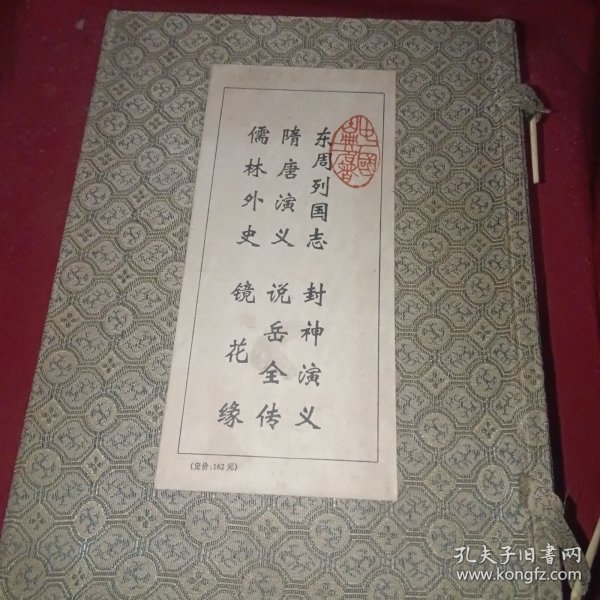 东周列国志 封神演义
隋唐演义 说岳全传
儒林外史 镜花缘
中国古典名著
(定价:162元)
孔夫子旧书网
www.kongfz.com